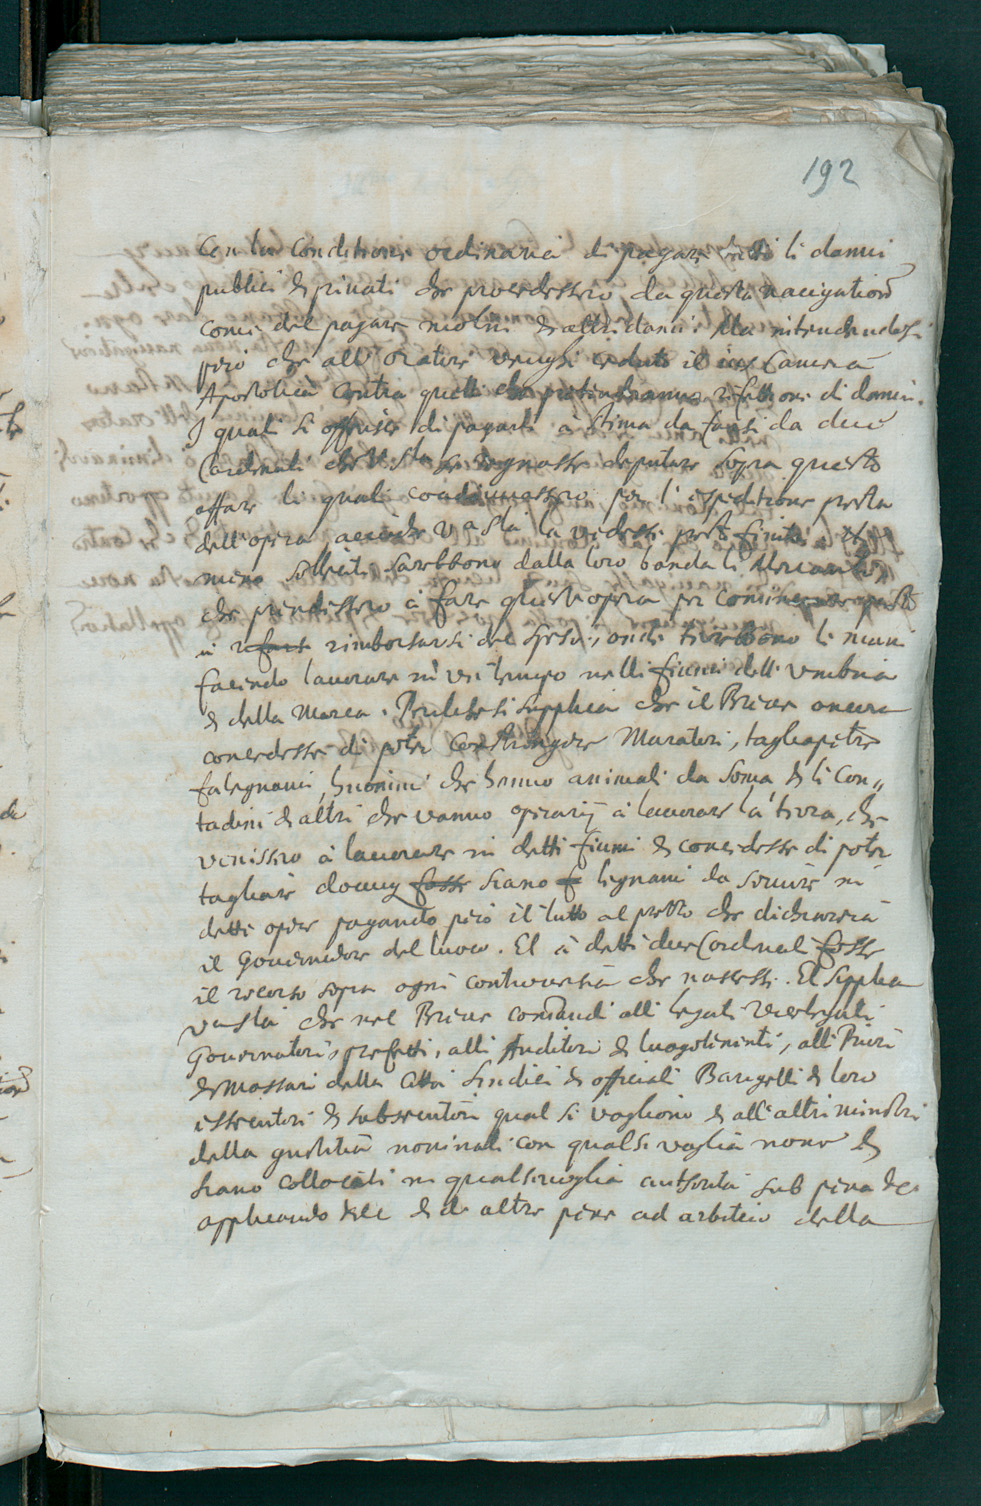 192
Con la Conditione ordinaria di pagare tutti li danni
publici et privati che procedessero da questa navigatione
come del pagare molini et altri danni. Ma intendendosi
però che all' oratore venghi ceduto il ius Camera
Apostolica contra quelli che pretenderanno refettione di danni.
I quali si offerisce di pagarli a stima da farsi da due
Cardinali che V. Sta si degnasse deputare sopra questo
affare li quali continuassero per l' espeditione presta
dell' opera acciò che V a Sta la vedesse presto finita, et
meno solleciti sarebbono dalla loro banda li Mercanti
che prendessero à fare quest' opera per cominciare presto
à rimborsarsi del speso, onde tirarebbono le mani
facendo lavorare in un' tempo nelli fiumi dell' Umbria
et della Marca. Perilche si supplica che il Breve ancora
concedesse di poter Constringere Muratori, tagliapietre
falegnami, huomini che hanno animali da soma et li Con,,
tadini et altri che vanno operarij à lavorare la terra, che
venissero à lavorare in detti fiumi et concedesse di poter
tagliare dovunq fosse siano legnami da servire in
dette opere pagando però il tutto al prezzo che dichiarerà
il Governatore del luoco. Et à detti due Cardinali fosse
il recorso sopra ogni controversia che nascesse. Et supplica
V a Sta che nel Breve comandi alli legati Vicelegati
Governatori, prefetti, alli Auditori et luogotenenti, alli Priori
et Massari delle Città Sindici et officiali Barigelli et loro
essecutori et subsecutori qual si vogliono et all' altri ministri
della giustitia nominati con qualsivoglia nome et
siano collocati in qualsivoglia autorità sub pena etc.
applicando etc et di altre pene ad arbitrio della